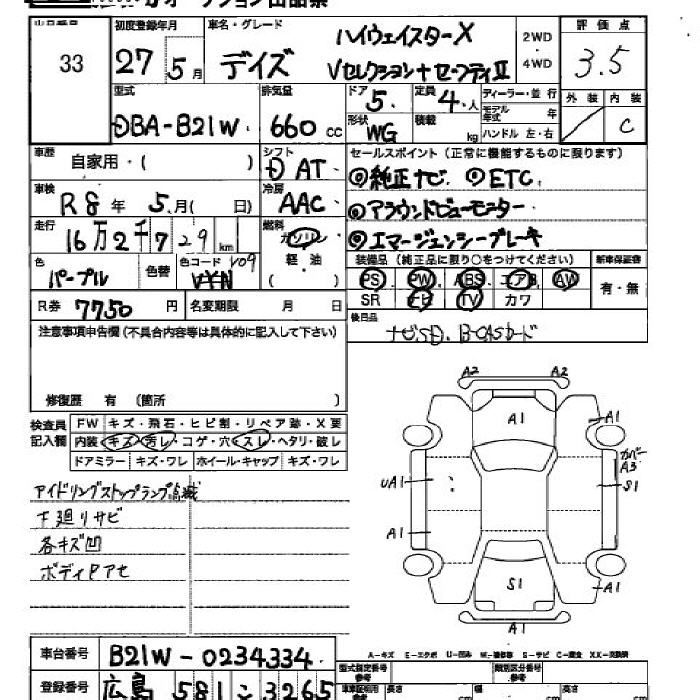 オークション出品票
出品番号 初度登録年月 車名・グレード 評価点
33 27 5月 デイズ ハイウェイスターX 2WD・4WD 3.5
Vセレクション+セーフティII
型式 排気量 ドア 定員 ディーラー・並行 外装 内装
DBA-B21W 660cc 5 4人 モデル年式 年 C
形状 WG 積載 kg ハンドル 左・右
車歴 自家用・( ) シフト セールスポイント(正常に機能するものに限ります)
DAT ◎純正ナビ. ◎ETC.
車検 R8年 5月( 日) 冷房 AAC ◎アラウンドビューモニター
走行 16万2千729km 燃料 ガソリン ◎エマージェンシーブレーキ
軽油 ( ) 装備品(純正品に限り○をつけてください) 新車保証書
色 パープル 色替 色コード V09 PS PW ABS エアB AW 有・無
SR ナビ TV カワ
R券 7750円 名変期限 月 日 後日品
ナビSD. B-CASカード
注意事項申告欄(不具合内容等は具体的に記入して下さい)
修復歴 有 (箇所 )
検査員記入欄 FW キズ・飛石・ヒビ割・リペア跡・X要
内装 キズ・汚レ・コゲ・穴・スレ・ヘタリ・破レ
ドアミラー キズ・ワレ ホイール・キャップ キズ・ワレ
アイドリングストップランプ点滅
下廻リサビ
各キズ凹
ボディヤケ
A2 A2
A1 A1
カバーA3
UA1 S1
A1
S1 A1
A1
A-キズ E-エクボ U-凹み W-補修跡 S-サビ C-腐食 XX-交換済
車台番号 B21W-0234334 型式指定番号 類別区分番号
登録番号 広島 581 こ 3265 長さ cm 幅 cm 高さ cm